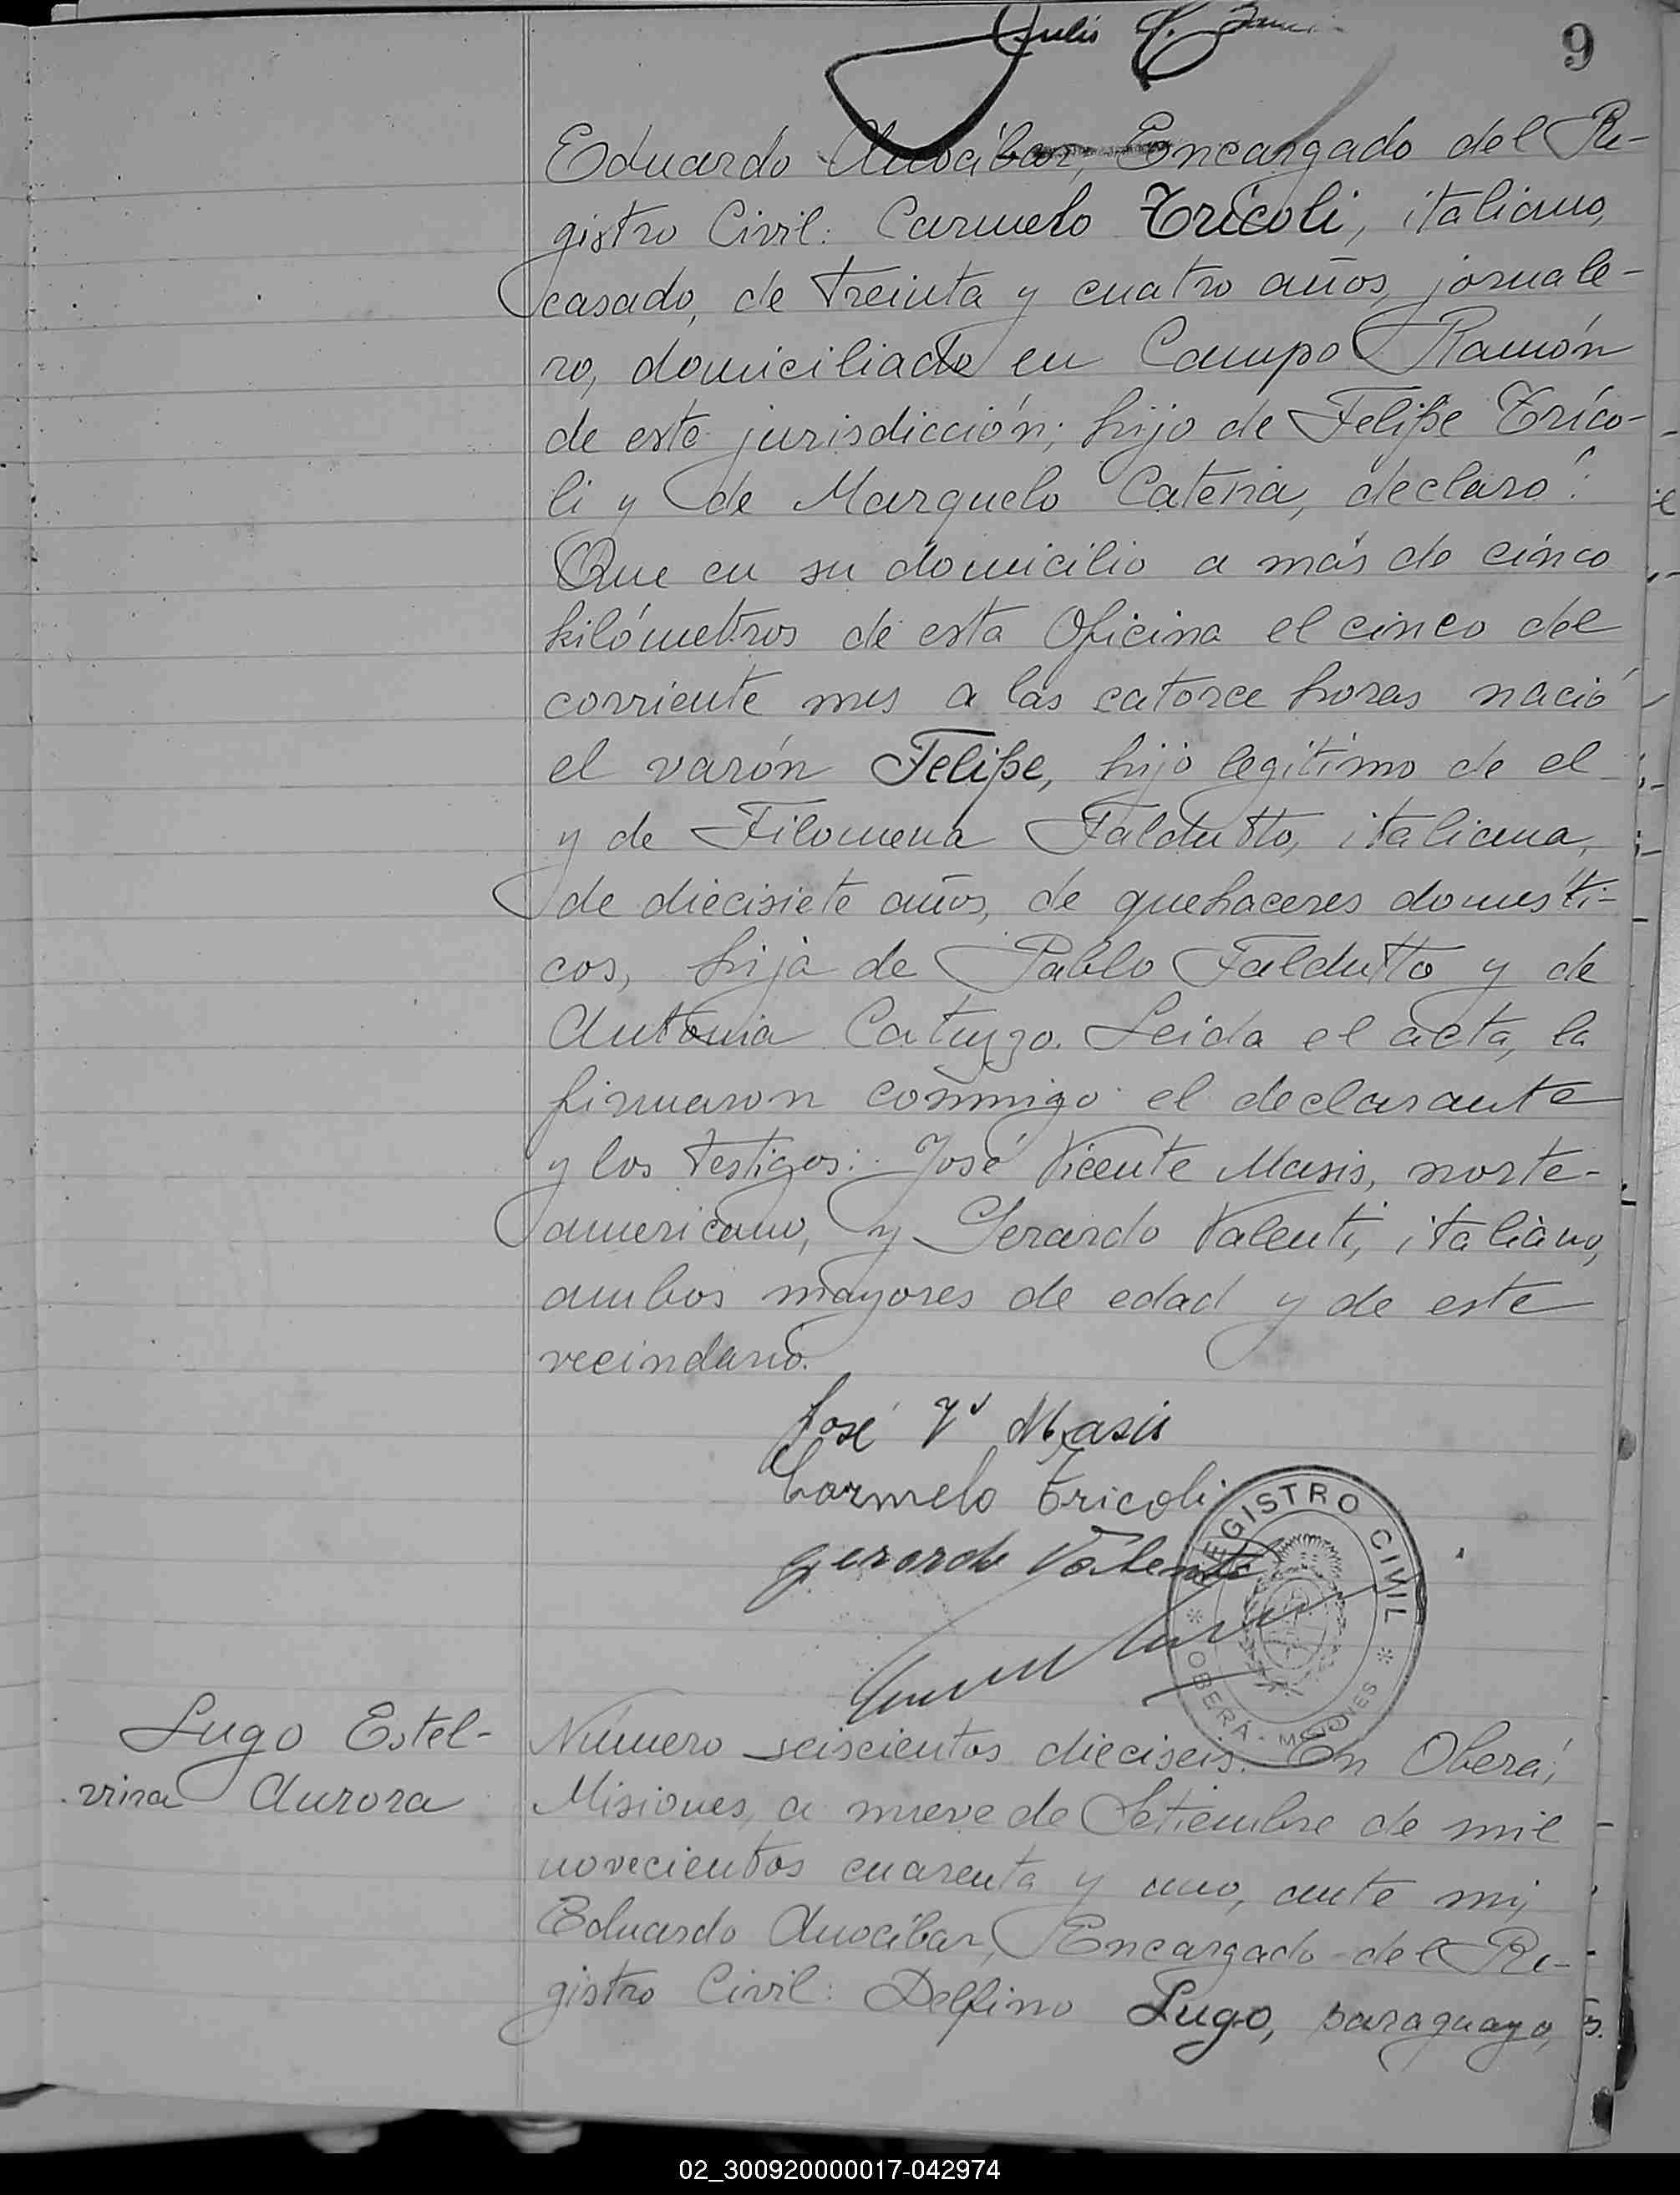 Julio A.
9
Eduardo Anocíbar, Encargado del Re-
gistro Civil: Carmelo Trícoli, italiano,
casado, de treinta y cuatro años, jornale-
ro, domiciliado en Campo Ramón
de esta jurisdicción; hijo de Felipe Tríco-
li y de Marquelo Catena, declaró:
Que en su domicilio a más de cinco
kilómetros de esta Oficina el cinco del
corriente mes a las catorce horas nació
el varón Felipe, hijo legítimo de el
y de Filomena Faldutto, italiana,
de diecisiete años, de quehaceres domésti-
cos, hija de Pablo Faldutto y de
Antonia Catuzzo. Leida el acta, la
firmaron conmigo el declarante
y los testigos: José Vicente Masis, norte-
americano, y Gerardo Valenti, italiano,
ambos mayores de edad y de este
vecindario.
José V. Masis
Carmelo Tricoli
Gerardo Valenti
REGISTRO CIVIL
OBERÁ - MISIONES
Lugo Estel-
vina Aurora
Número seiscientos dieciseis. En Oberá,
Misiones, a nueve de Setiembre de mil
novecientos cuarenta y uno, ante mi,
Eduardo Anocíbar, Encargado del Re-
gistro Civil: Delfino Lugo, paraguayo,
02_300920000017-042974